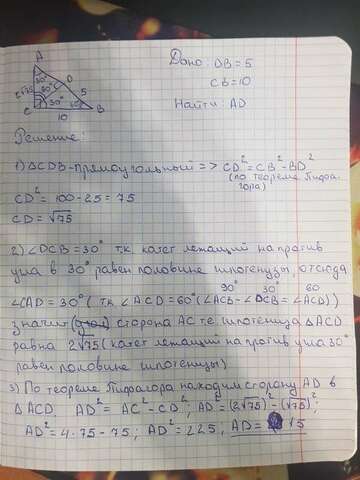 A
Дано: DB=5
30°
D
60°
5
2√75
CB=10
C
30°
60°
B
10
Найти: AD
Решение:
1) ΔCDB-прямоугольный => CD²=CB²-BD²
(по теореме Пифагора)
CD²=100-25=75
CD=√75
2) ∠DCB=30° т.к. катет лежащий на против
угла в 30° равен половине гипотенузы, отсюда
90° 30° 60
∠CAD=30° (т.к. ∠ACD=60° (∠ACB-∠DCB=∠ACD))
значит сторона AC т.е. гипотенуза ΔACD
равна 2√75 (катет лежащий на против угла 30°
равен половине гипотенузы)
3) По теореме Пифагора находим сторону AD в
ΔACD, AD²=AC²-CD², AD²=(2√75)²-(√75)²,
AD²=4·75-75; AD²=225, AD=15